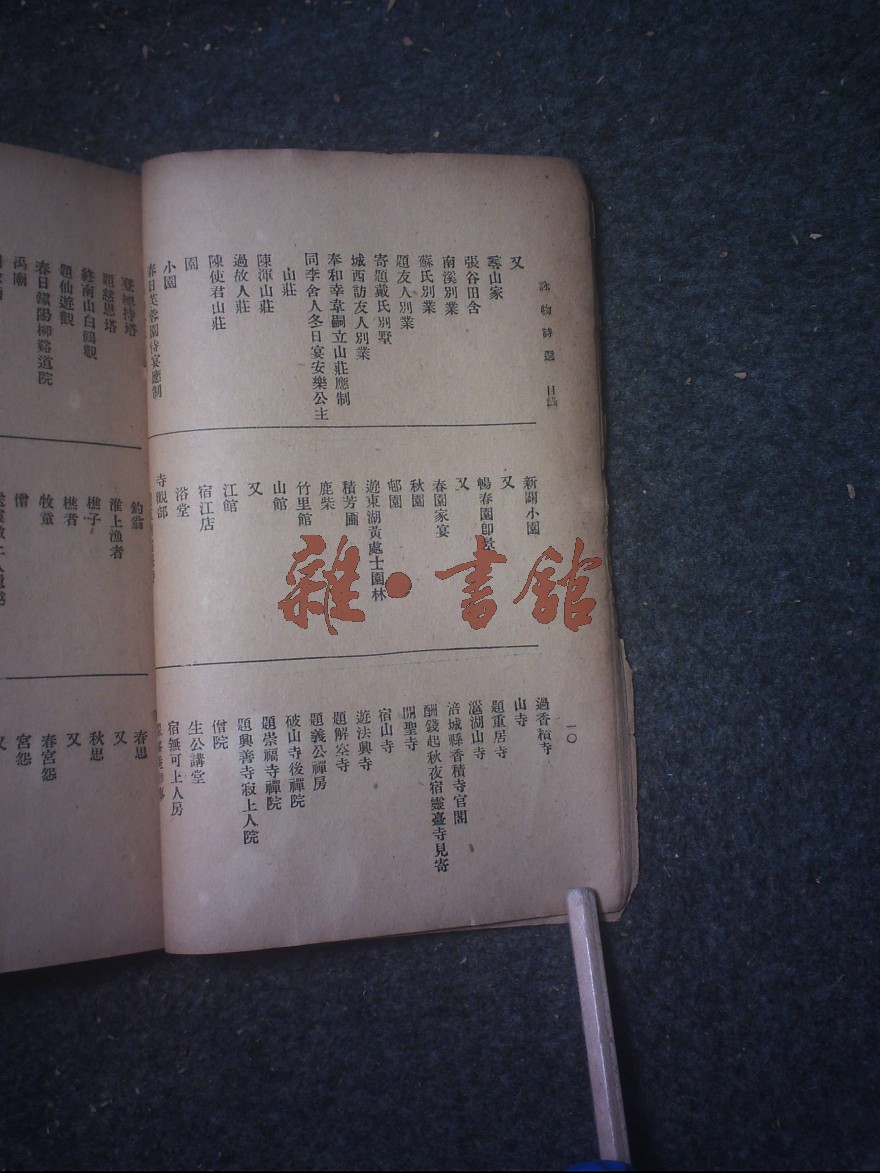 詠物詩選 目錄
一〇
又
尋山家
張谷田舍
南溪別業
蘇氏別業
題友人別業
寄題戴氏別墅
城西訪友人別業
奉和幸韋嗣立山莊應制
同李舍人冬日宴安樂公主
山莊
陳渾山莊
過故人莊
陳使君山莊
園
小園
春日芙蓉園侍宴應制
新闢小園
又
暢春園即景
又
春園家宴
秋園
邨園
遊東湖黃處士園林
積芳圃
鹿柴
竹里館
山館
又
江館
宿江店
浴堂
寺觀部
過香積寺
山寺
題重居寺
㴩湖山寺
涪城縣香積寺官閣
酬錢起秋夜宿靈臺寺見寄
開聖寺
宿山寺
遊法興寺
題解空寺
題義公禪房
破山寺後禪院
題崇福寺禪院
題興善寺寂上人院
僧院
生公講堂
宿無可上人房
登總持塔
題慈恩塔
終南山白鶴觀
題仙遊觀
春日鎮陽柳谿道院
禹廟
釣翁
淮上漁者
樵子
樵者
牧童
僧
春思
又
秋思
又
春宮怨
宮怨
又
雜·書館